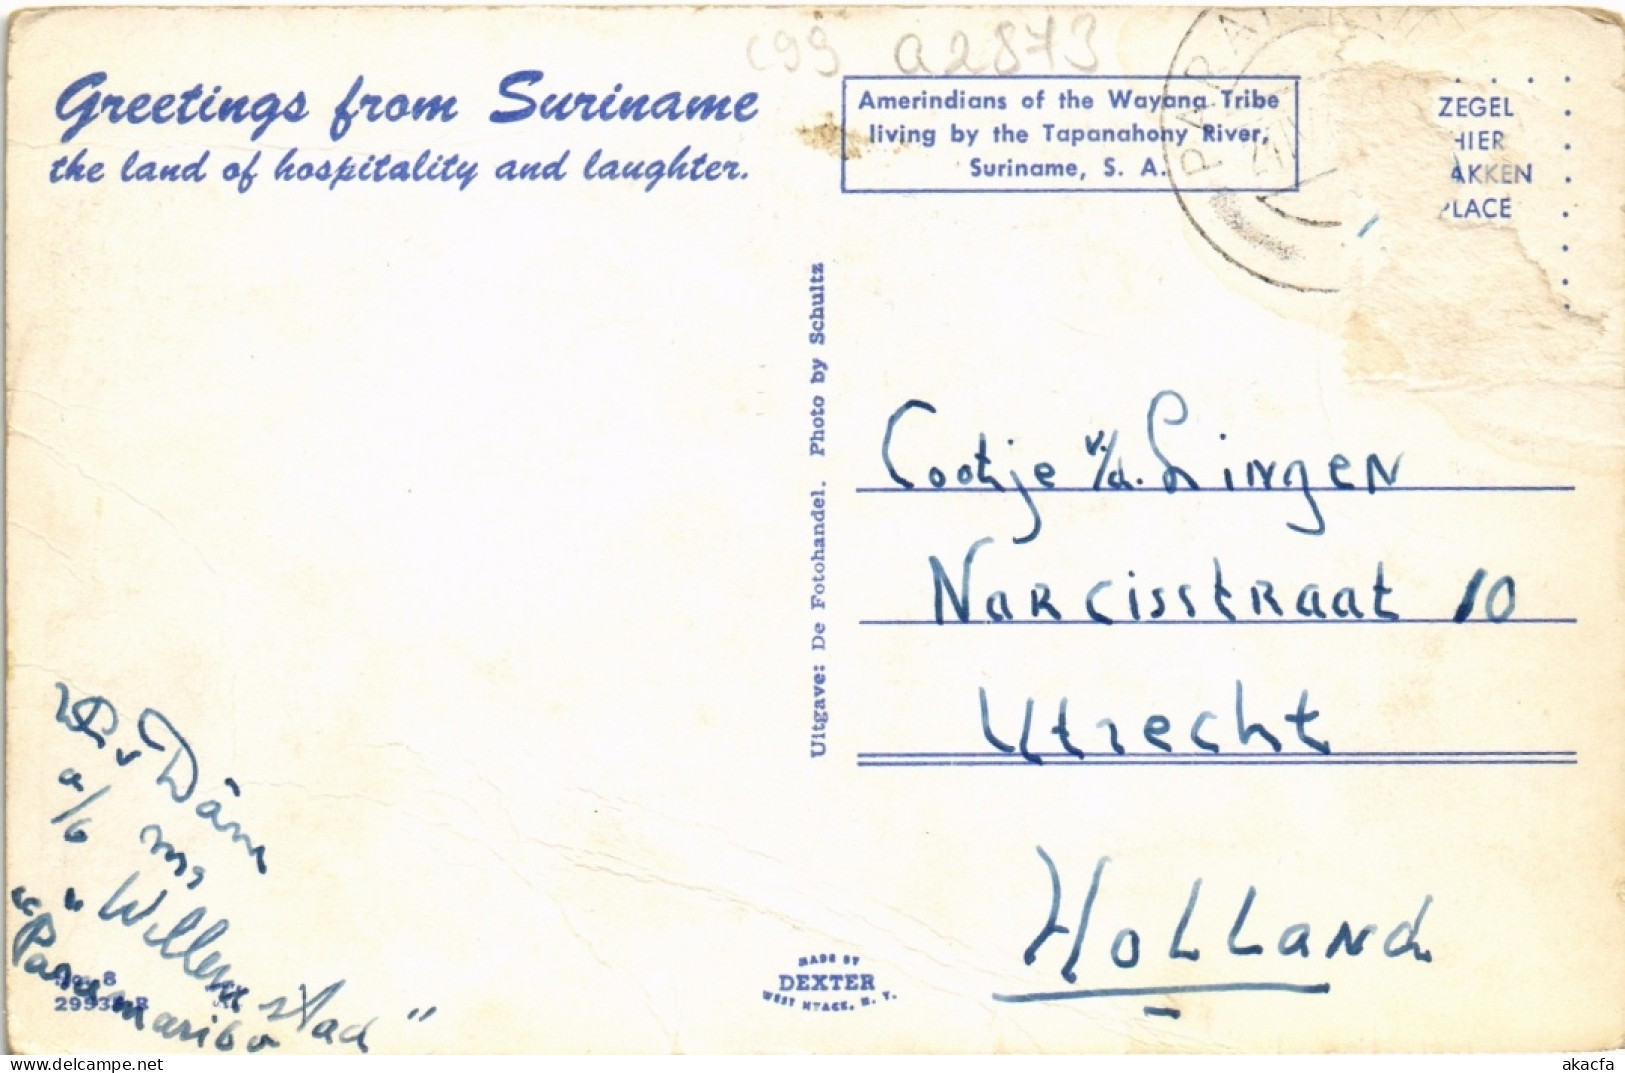 c99 a2873
Greetings from Suriname
the land of hospitality and laughter.
Amerindians of the Wayana Tribe
living by the Tapanahony River,
Suriname, S. A.
ZEGEL
HIER
AKKEN
PLACE
Uitgave: De Fotohandel. Photo by Schultz
Cootje v/d. Lingen
Narcisstraat 10
Utrecht
Holland
v Dam
a/b ms
"Willemstad"
"Paramaribo
MADE BY
DEXTER
WEST NYACK, N. Y.
akacfa